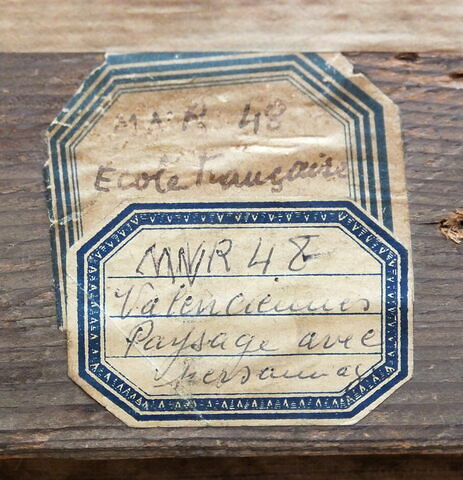 MNR 48
Ecole Française
MNR 48
Valenciennes
Paysage avec
personnages